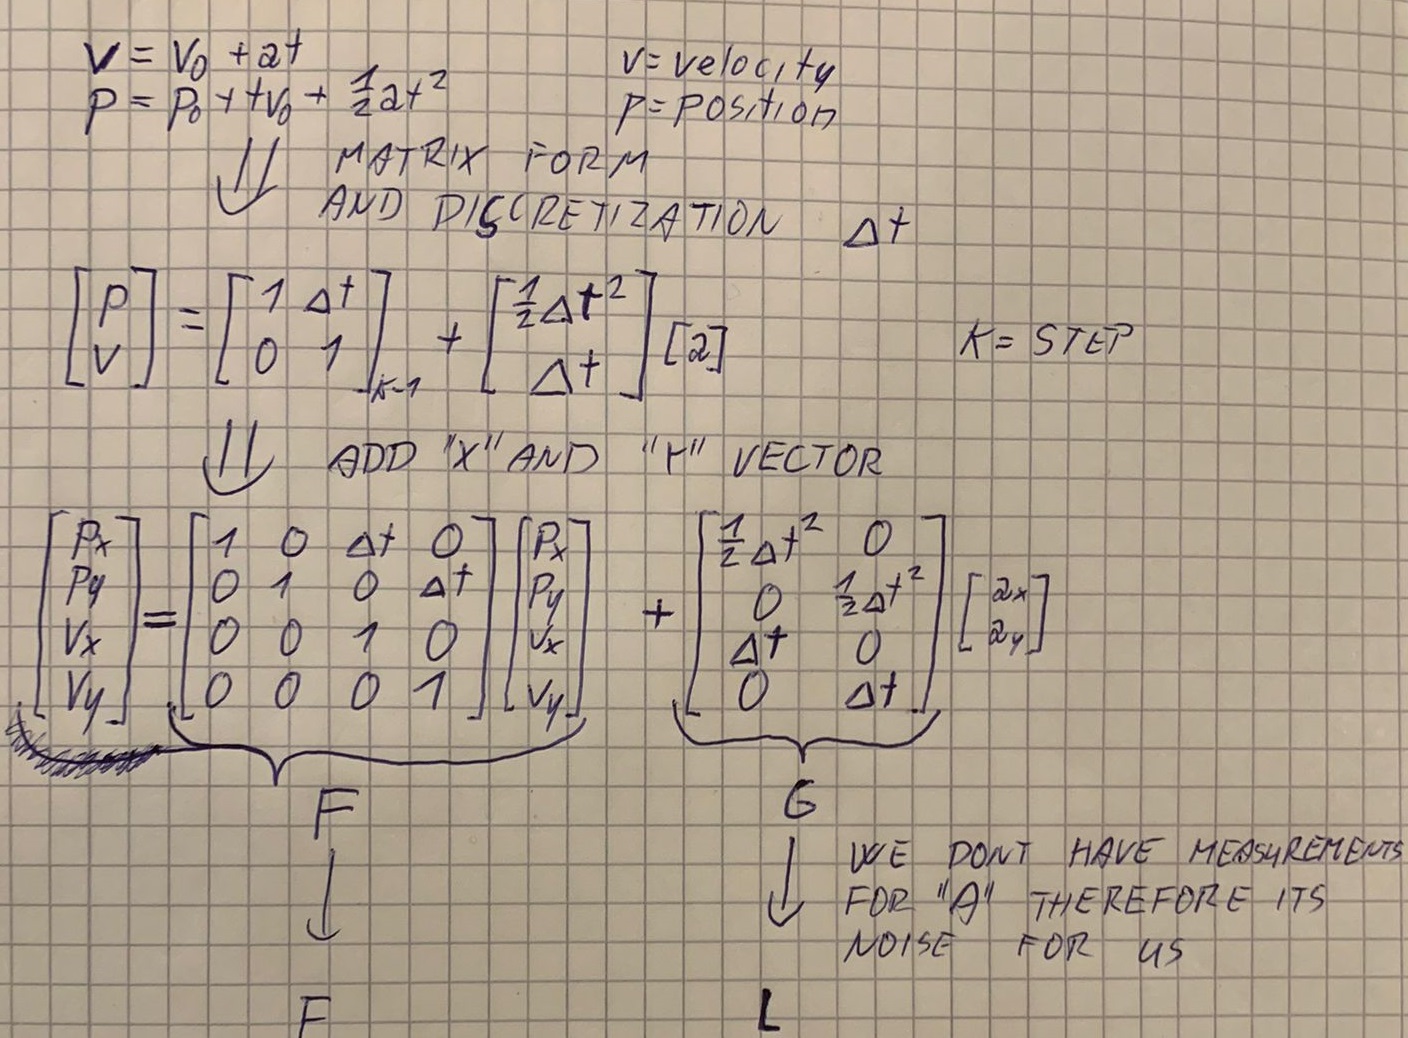 v = v₀ + at
v = velocity
p = p₀ + tv₀ + ½at²
p = position
⇓ MATRIX FORM
AND DISCRETIZATION Δt
[p; v] = [1 Δt; 0 1]ₖ₋₁ + [½Δt²; Δt] [a]
K = STEP
⇓ ADD "X" AND "Y" VECTOR
[Px; Py; Vx; Vy] = [1 0 Δt 0; 0 1 0 Δt; 0 0 1 0; 0 0 0 1] [Px; Py; Vx; Vy] + [½Δt² 0; 0 ½Δt²; Δt 0; 0 Δt] [ax; ay]
F
G
↓
↓ WE DONT HAVE MEASUREMENTS
FOR "A" THEREFORE ITS
NOISE FOR US
F
L